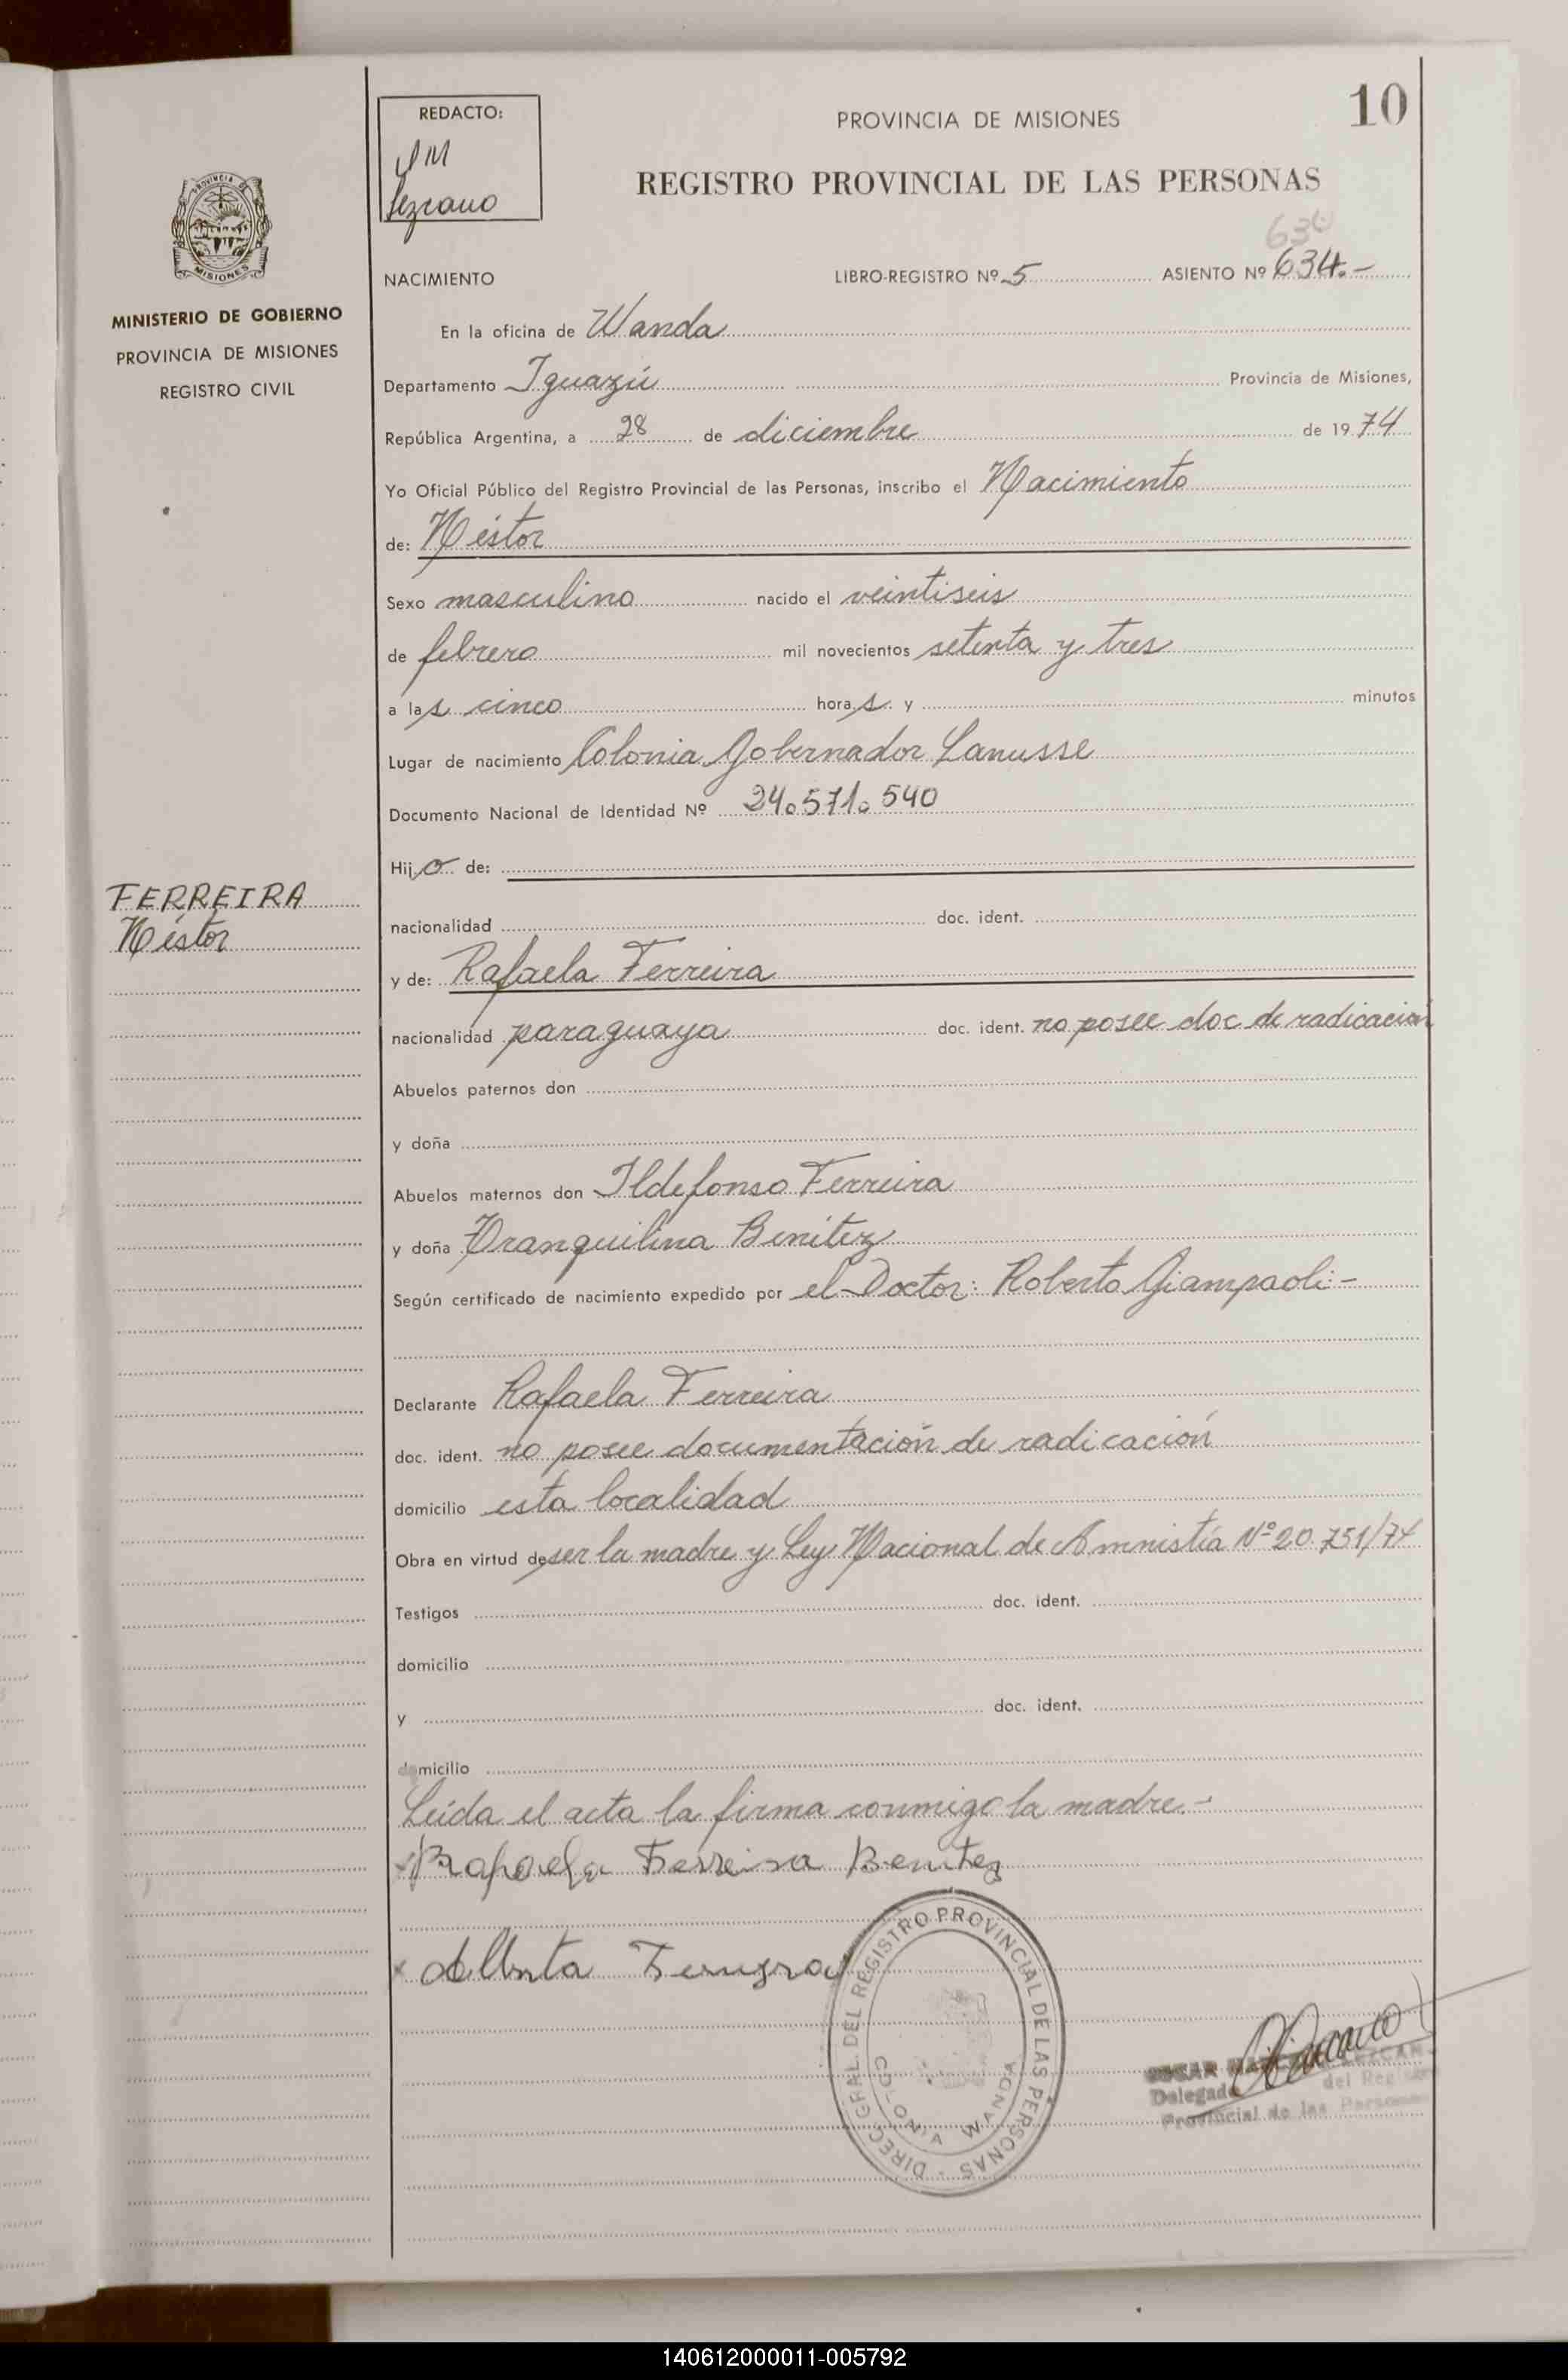 10
REDACTO:
PROVINCIA DE MISIONES
REGISTRO PROVINCIAL DE LAS PERSONAS
PROVINCIA DE
MISIONES
MINISTERIO DE GOBIERNO
PROVINCIA DE MISIONES
REGISTRO CIVIL
FERREIRA
Néstor
630
NACIMIENTO LIBRO-REGISTRO Nº 5 ASIENTO Nº 634.-
En la oficina de Wanda
Departamento Iguazú Provincia de Misiones,
República Argentina, a 28 de diciembre de 1974
Yo Oficial Público del Registro Provincial de las Personas, inscribo el Nacimiento
de: Néstor
Sexo masculino nacido el veintiseis
de febrero mil novecientos setenta y tres
a las cinco horas y minutos
Lugar de nacimiento Colonia Gobernador Lanusse
Documento Nacional de Identidad Nº 24.571.540
Hijo de:
nacionalidad doc. ident.
y de: Rafaela Ferreira
nacionalidad paraguaya doc. ident. no posee doc de radicación
Abuelos paternos don
y doña
Abuelos maternos don Ildefonso Ferreira
y doña Tranquilina Benítez
Según certificado de nacimiento expedido por el Doctor: Roberto Giampaoli:-
Declarante Rafaela Ferreira
doc. ident. no posee documentación de radicación
domicilio esta localidad
Obra en virtud de ser la madre y Ley Nacional de Amnistía Nº 20.751/74
Testigos doc. ident.
domicilio
y doc. ident.
domicilio
Leída el acta la firma conmigo la madre.-
Rafaela Ferreira Benitez
DIREC. GRAL. DEL REGISTRO PROVINCIAL DE LAS PERSONAS
COLONIA WANDA
Delegado del Registro
Provincial de las Personas
140612000011-005792